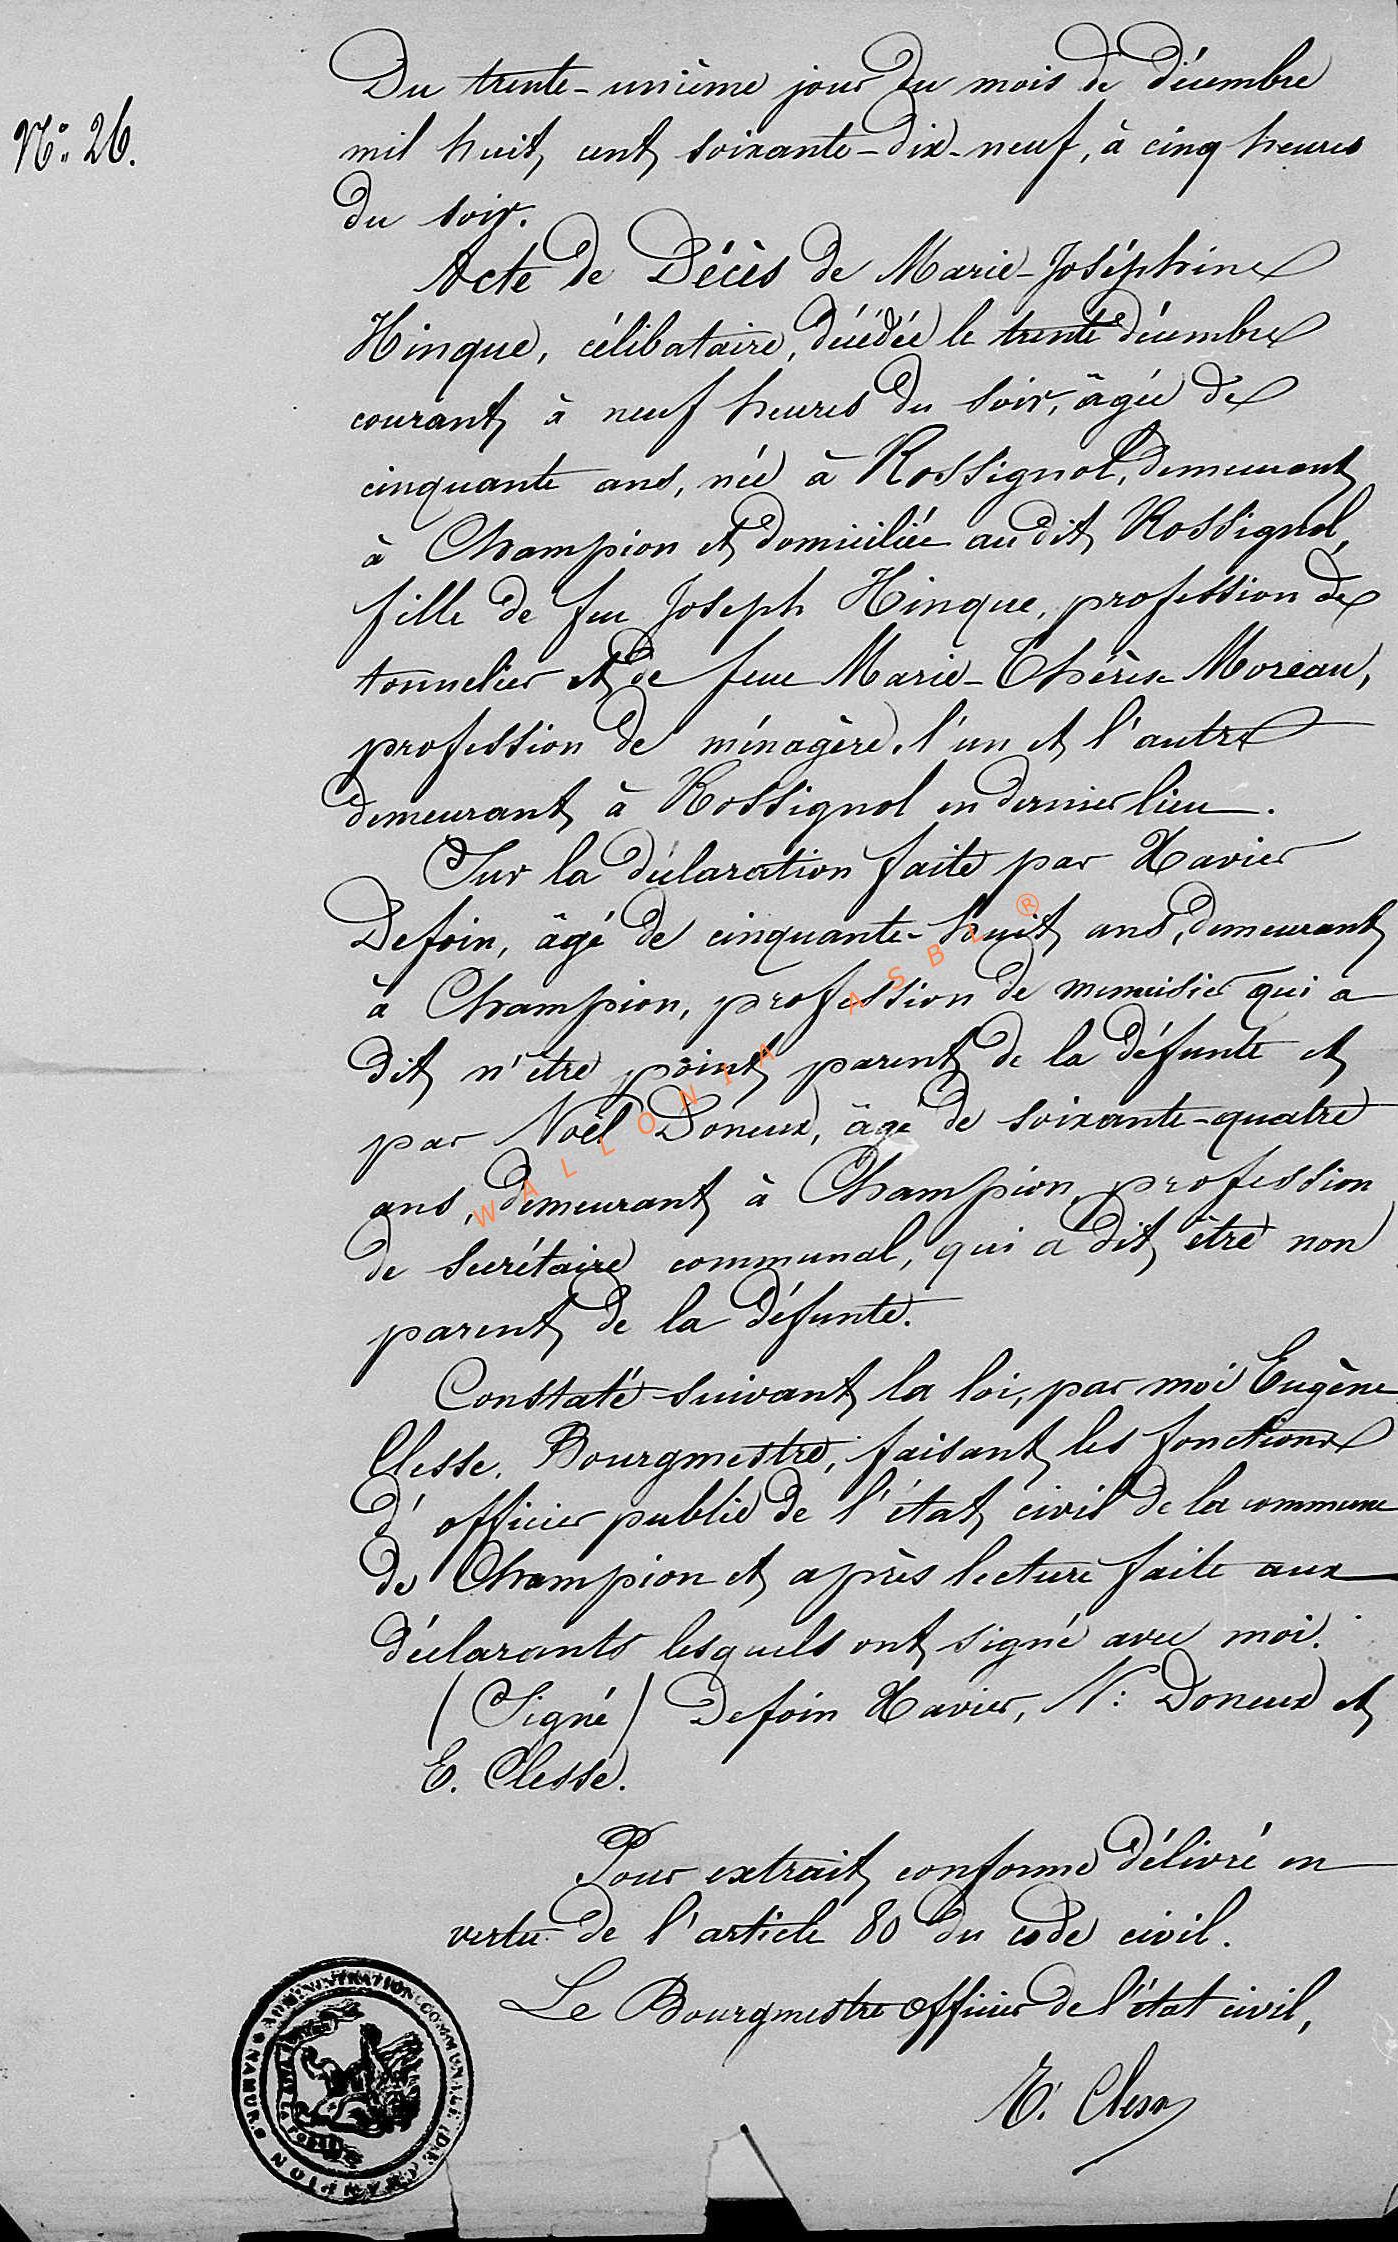 Du trente-unième jour du mois de décembre
N° 26.
mil huit cent soixante-dix-neuf, à cinq heures
du soir.
Acte de Décès de Marie-Joséphine
Hinque, célibataire, décédée le trente décembre
courant à neuf heures du soir, âgée de
cinquante ans, née à Rossignol, demeurant
à Champion et domiciliée au dit Rossignol,
fille de feu Joseph Hinque, profession de
tonnelier et de feue Marie-Thérèse Moreau,
profession de ménagère, l'un et l'autre
demeurant à Rossignol en dernier lieu.
Sur la déclaration faite par Xavier
Defoin, âgé de cinquante-huit ans, demeurant
à Champion, profession de menuisier qui a
dit n'être point parent de la défunte et
par Noël Doneux, âgé de soixante-quatre
ans, demeurant à Champion, profession
de secrétaire communal, qui a dit être non
parent de la défunte.
Constaté suivant la loi, par moi Eugène
Clesse, Bourgmestre, faisant les fonctions
d'officier public de l'état civil de la commune
de Champion et après lecture faite aux
déclarants lesquels ont signé avec moi.
(Signé) Defoin Xavier, N: Doneux et
E. Clesse.
Pour extrait conforme délivré en
vertu de l'article 80 du code civil.
Le Bourgmestre officier de l'état civil,
E. Clesse
ADMINISTRATION COMMUNALE DE CHAMPION NAMUR
WALLONIA ASBL ®